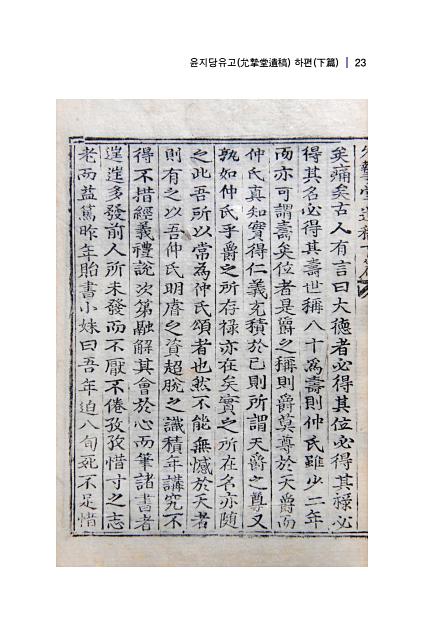 윤지당유고(允摯堂遺稿) 하편(下篇) | 23
允摯堂遺稿下篇
矣痛矣古人有言曰大德者必得其位必得其祿必
得其名必得其壽世稱八十爲壽則仲氏雖少二年
而亦可謂壽矣位者是爵之稱則爵莫尊於天爵而
仲氏真知實得仁義充積於已則所謂天爵之尊又
孰如仲氏乎爵之所存祿亦在矣實之所在名亦随
之此吾所以常為仲氏頌者也然不能無憾於天者
則有之以吾仲氏明睿之資超脫之識積年講究不
得不措經義禮說次第融解其會於心而筆諸書者
逞逞多發前人所未發而不厭不倦孜孜惜寸之志
老而益篤昨年貽書小妹曰吾年迫八旬死不足惜